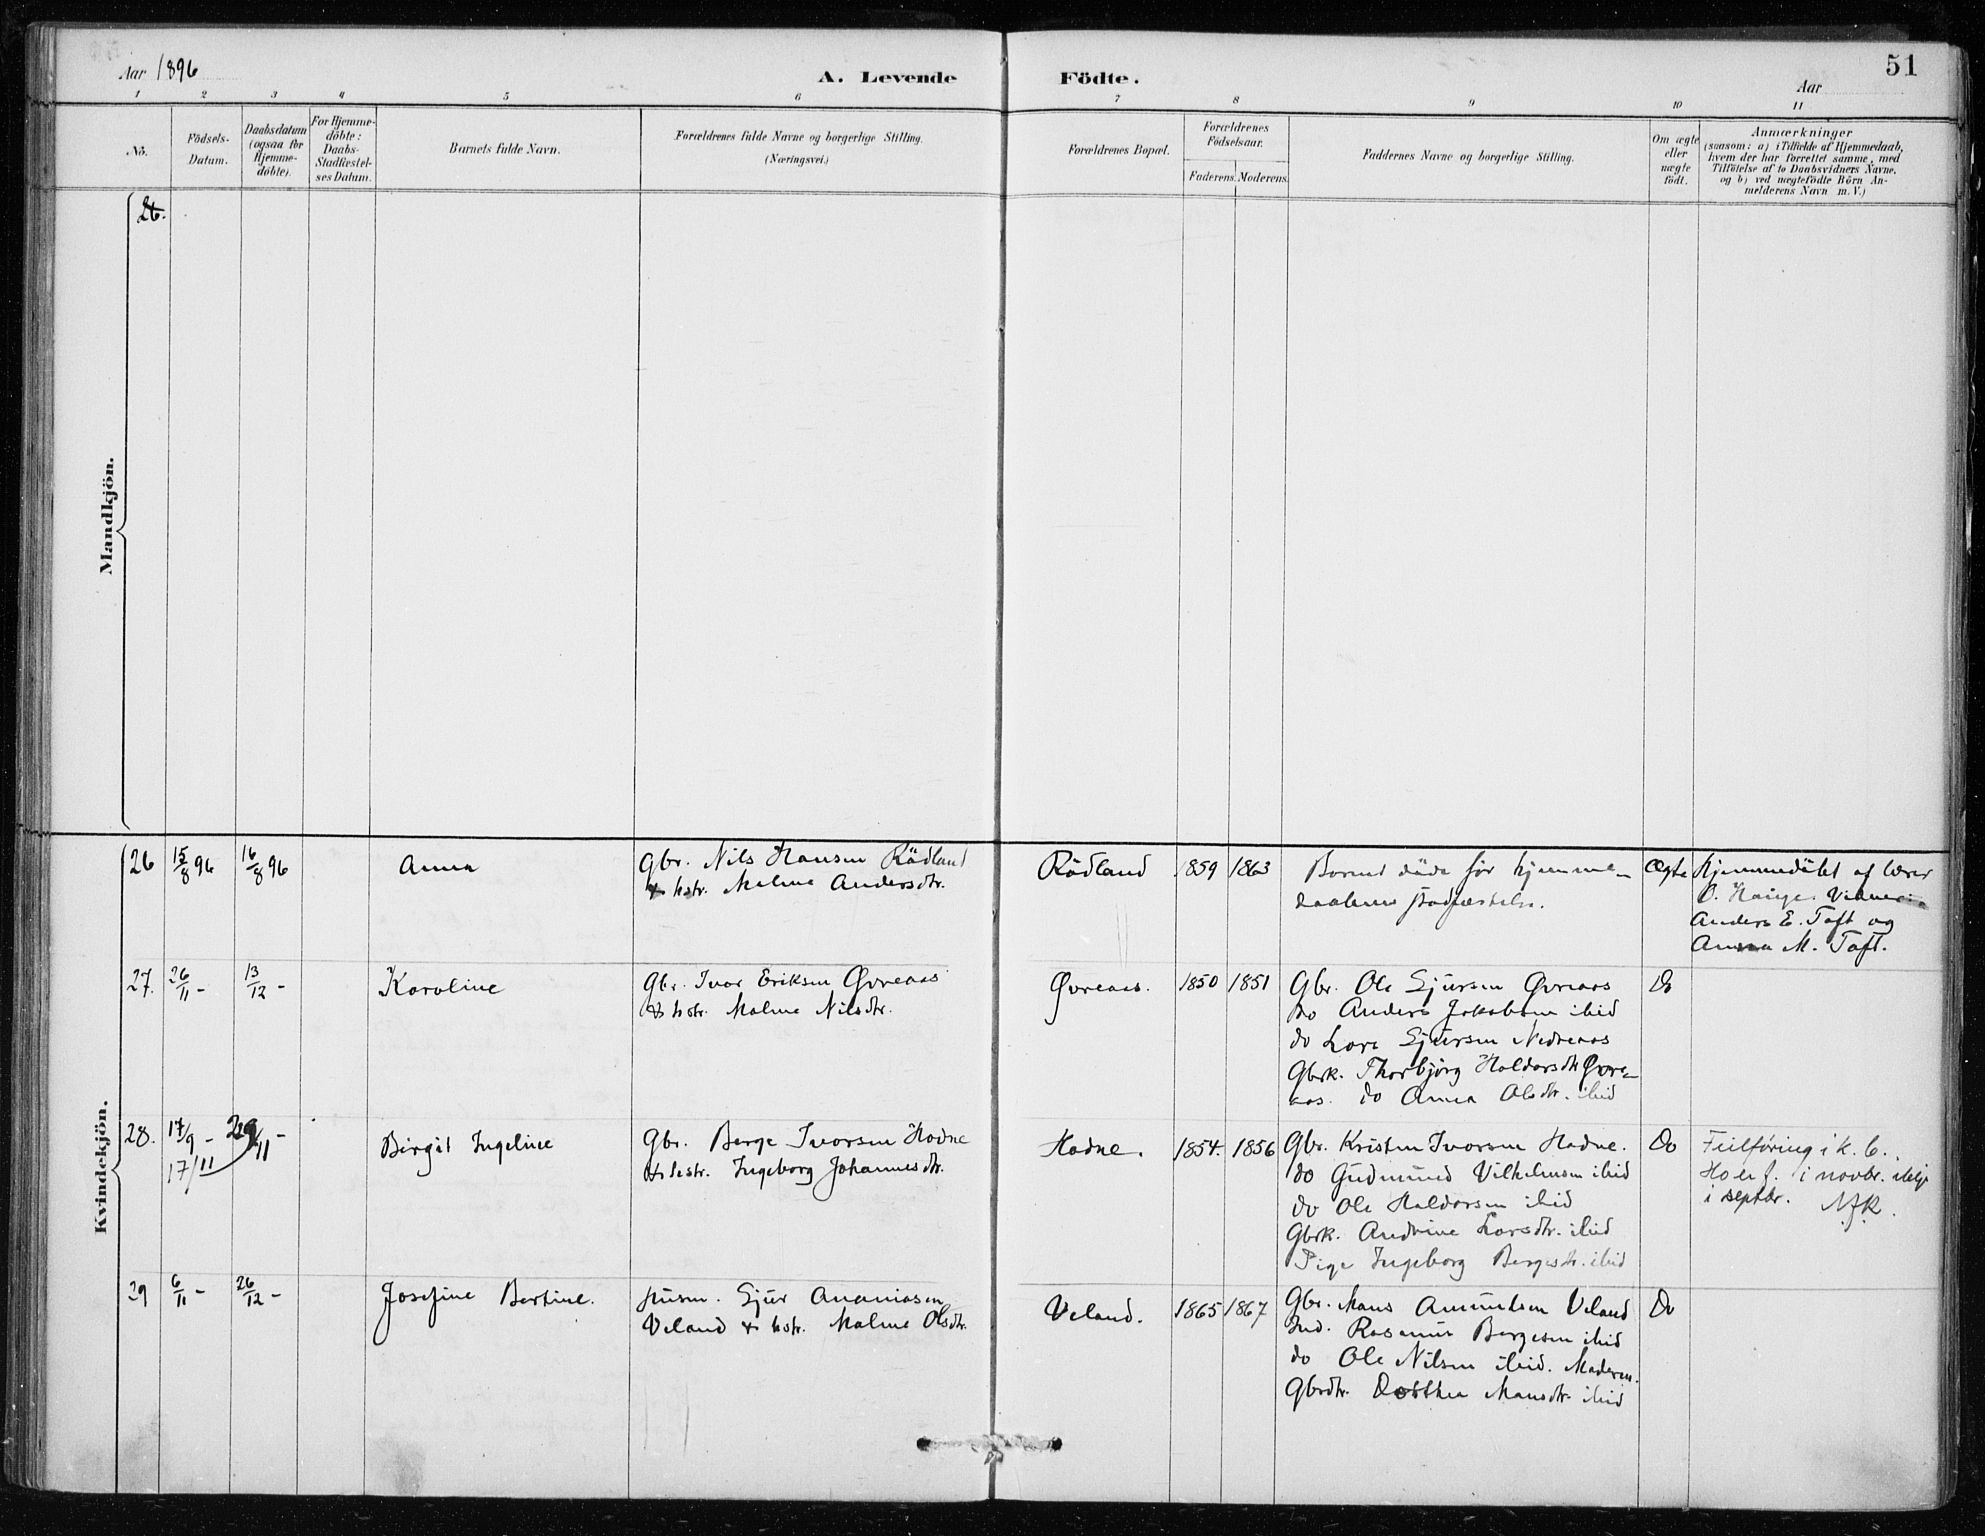 51
Aar 1896
A. Levende Födte.
Aar
1 2 3 4 5 6 7 8 9 10 11
No.
Födsels-
Datum.
Daabsdatum
(ogsaa for
Hjemme-
döbte).
For Hjemme-
döbte:
Daabs-
Stadfæstel-
ses Datum.
Barnets fulde Navn.
Forældrenes fulde Navne og borgerlige Stilling.
(Næringsvei.)
Forældrenes Bopæl.
Forældrenes
Födselsaar.
Faderens. Moderens.
Faddernes Navne og borgerlige Stilling.
Om ægte
eller
uægte
födt.
Anmærkninger
(saasom: a) i Tilfælde af Hjemmedaab,
hvem der har forrettet samme, med
Tilföielse af to Daabsvidners Navne.
og b) ved uægtefödte Börn An-
melderens Navn m. V.)
Mandkjön.
26.
Kvindekjön.
26
15/8 96
16/8 96
Anna
Gbr. Nils Hansen Rödland
& hstr. Malene Andersdtr.
Rödland
1859
1863
Barnet döde før hjemme-
daabens stadfæstelse.
Ægte
Hjemmedöbt af lærer
O. Hauge. Vidner:
Anders E. Toft og
Anna M. Toft.
27.
26/11 -
13/12 -
Karoline
Gbr. Ivar Eriksen Øvreaas
& hstr. Malene Nilsdtr.
Øvreaas.
1850
1851
Gbr. Ole Sjursen Øvreaas
do Anders Jakobsen ibid
do Lars Sjursen Nedreaas
Gbrk. Thorbjørg Haldorsdtr Øvre-
aas. do Anna Olsdtr. ibid
Do
28.
17/9 -
17/11
29/11 -
Birgit Ingeline
Gbr. Berge Ivarsen Hodne
& hstr. Ingeborg Johannesdtr.
Hodne.
1854.
1856
Gbr. Kristen Ivarsen Hodne.
do Gudmund Vilhelmsen ibid
do Ole Haldorsen ibid
Gbrk. Andrine Larsdtr. ibid
Pige Ingeborg Bergesdtr. ibid
Do
Feilføring i k. b.
Ho er f. i novbr. ikkje
i septbr. NfR.
29
6/11 -
26/12 -
Josefine Bertine.
Husm. Sjur Ananiasen
Veland & hstr. Malene Olsdtr.
Veland.
1865
1867
Gbr. Mans Amundsen Veland
Ind. Rasmus Bergesen ibid
do Ole Nilsen ibid. Moderen.
Gbrdtr. Dorthea Mansdtr. ibid
Do